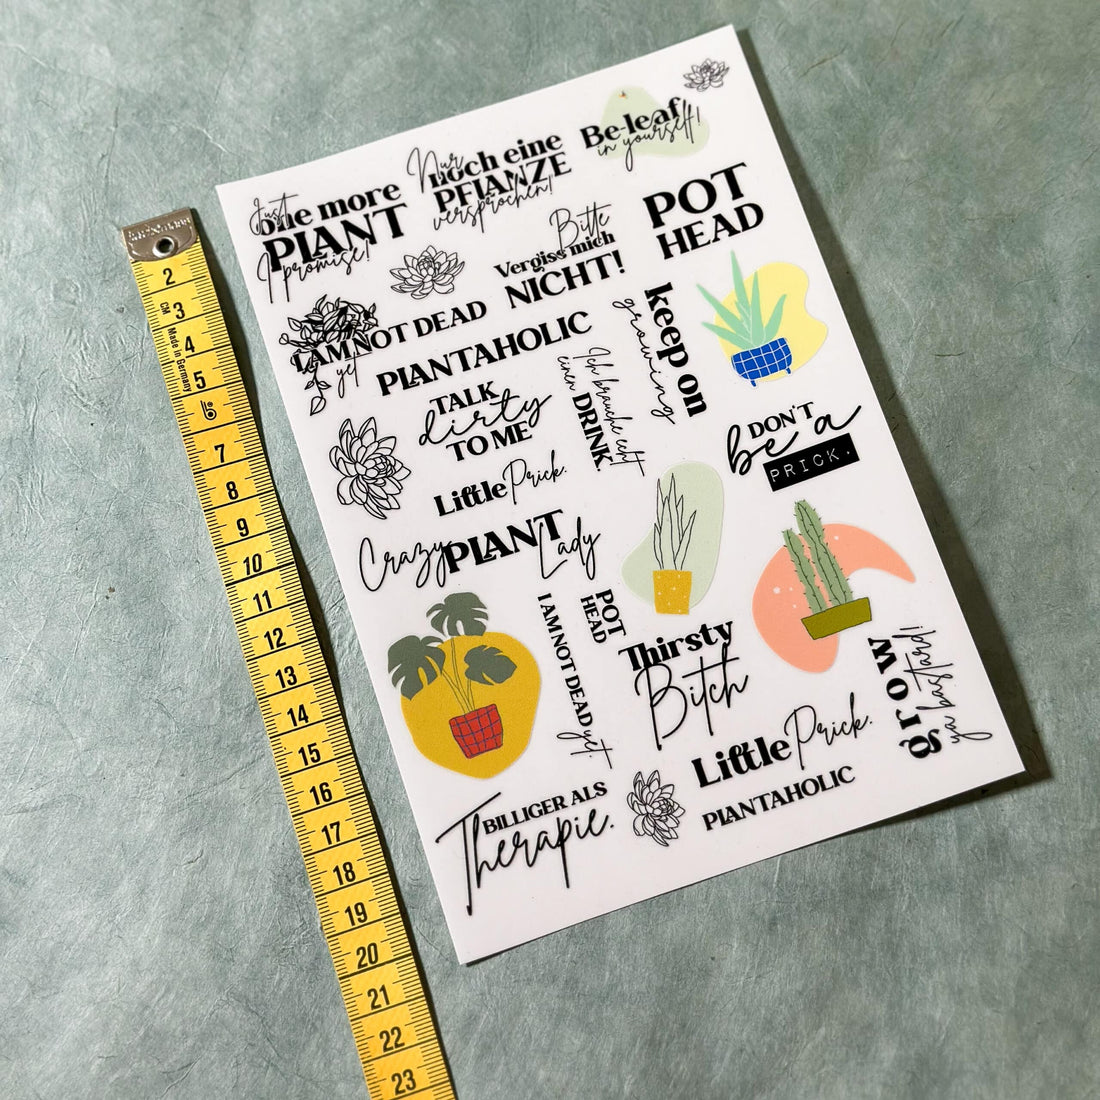 Just
one more
PLANT
I promise!
Nur
noch eine
PFLANZE
versprochen!
Be-leaf
in yourself!
POT
HEAD
Bitte
Vergiss mich
NICHT!
I AM NOT DEAD
yet
PLANTAHOLIC
keep on
growing
TALK
dirty
TO ME
Ich brauche echt
einen DRINK.
DON'T
be a
PRICK.
Little Prick.
Crazy PLANT Lady
I AM NOT DEAD yet.
POT
HEAD
Thirsty
Bitch
grow
ya bastard!
Little Prick.
BILLIGER ALS
Therapie.
PLANTAHOLIC
2
3
CM
Made in Germany
4
5
6
7
8
9
10
11
12
13
14
15
16
17
18
19
20
21
22
23